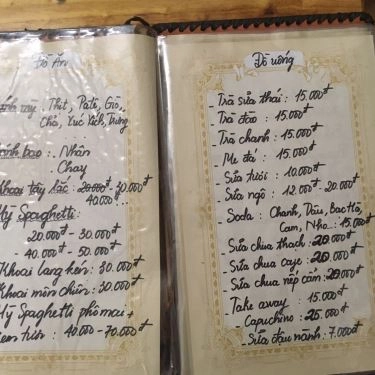 Đồ Ăn
Thịt, Patê, Giò,
Chả, Xúc Xích, Trứng
bao : . Nhân
Chay
Khoai tây lắc : 20.000đ - 30.000đ
40.000
Mỳ Spaghetti:
20.000đ - 30.000đ
40.000đ - 50.000đ
Khoai lang kén : 30.000đ
Khoai môn chiên : 30.000đ
Mỳ Spaghetti phô mai +
40.000 - 70.000đ
Đồ uống
- Trà sữa thái : 15.000đ
- Trà đào : 15.000đ
- Trà chanh : 15.000đ
- Me đá : 15.000đ
- Sữa tươi : 10.000đ
- Sữa ngô : 12.000đ - 20.000đ
Soda : Chanh, Dâu, Bạc Hà,
Cam, Nho.. : 15.000đ
- Sữa chua thạch : 20.000đ
- Sữa chua cafe : 20.000đ
- Sữa chua nếp cẩm : 20.000đ
Take away : 15.000đ
- Capuchino : 25.000đ
- Sữa đậu nành : 7.000đ